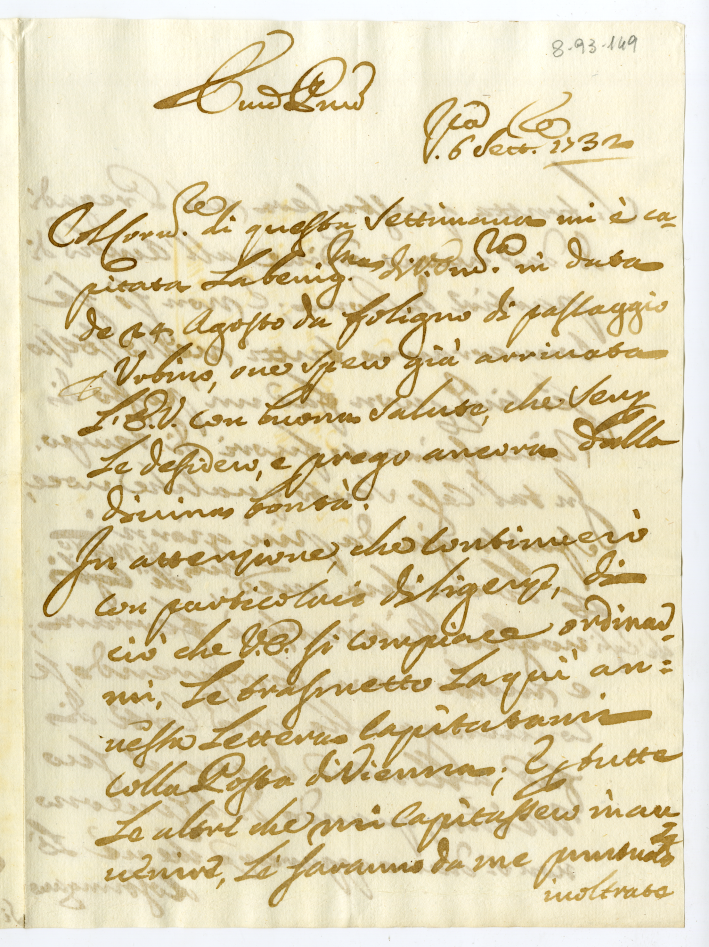 8-93-149
6 Sett. 1732
di questa Settimana mi è ca-
pitata La benig.ma di V. Em.za in data
de 24 Agosto da foligno di passaggio
Urbino, oue spero già arriuata
L'E.V. con buona salute, che semp
Le desidero, e prego ancora dalla
diuina bontà.
In attenzione, che continuerò
con particolare diligenz, di
ciò che V.E. si compiace ordinar-
mi, Le trasmetto La qui an=
nessa Lettera Capitatami
colla Posta di Vienna; E tutte
Le altre che mi Capitassero in au
uenire, Le saranno da me puntual.te
inoltrate